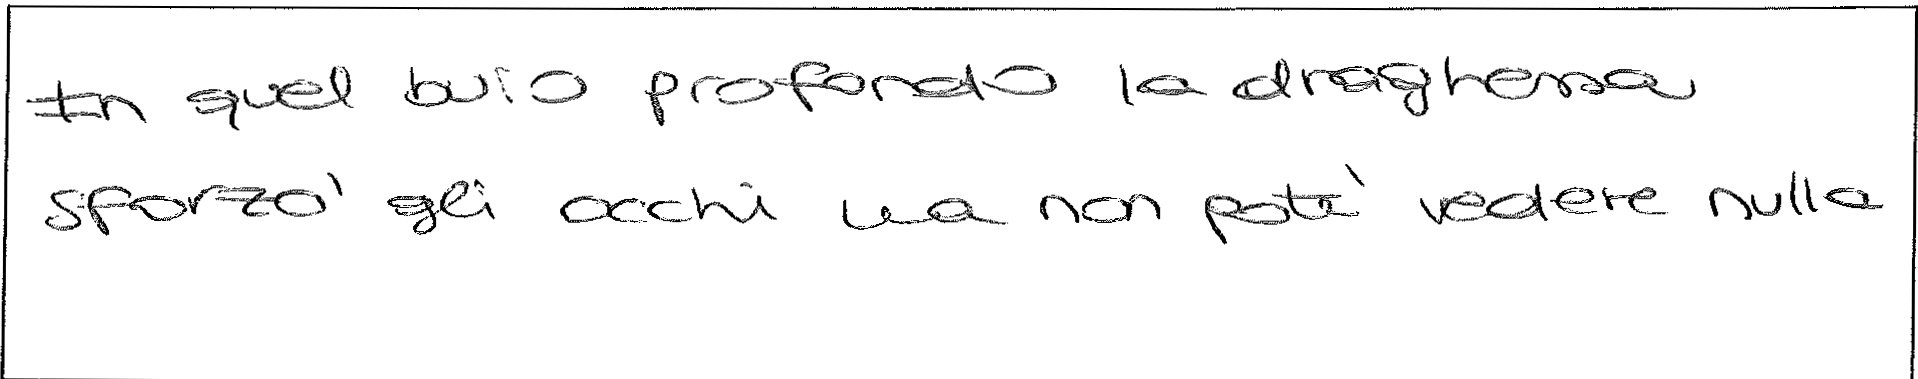 In quel buio profondo la draghessa
sforzo' gli occhi ma non potè vedere nulla